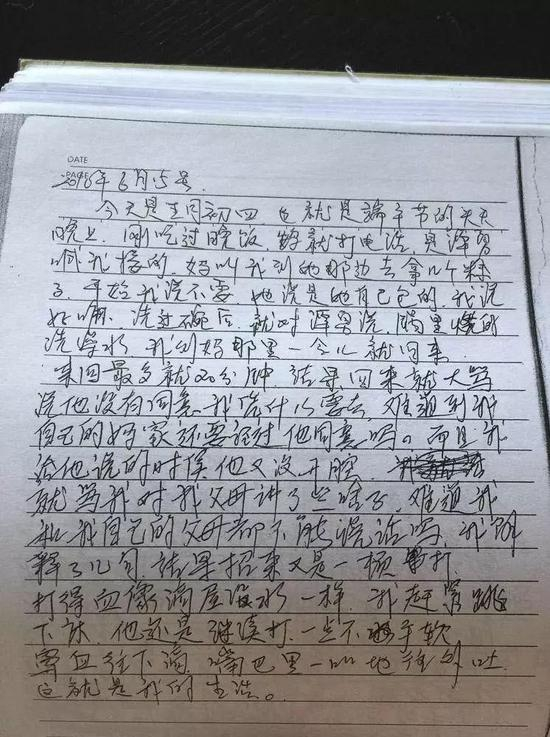 DATE
PAGE
2018年6月15号.
今天是五月初四 也就是端午节的头天
晚上. 刚吃过晚饭 妈就打电话. 是泽勇
啊我接的. 妈叫我到她那边去拿几个粽
子. 开始我说不要 她说是她自己包的. 我说
好嘛. 洗过碗后 就对泽勇说. 锅里烧的
洗澡水. 我到妈那里一会儿就回来.
来回最多就20分钟 结果回来就大骂
说他没有同意我凭什么要去. 难道到我
自己的妈家还要经过他同意吗. 而且我
给他说的时候他又没开腔.
就骂我对我父母讲了些啥子. 难道我
和我自己的父母都不能说话吗. 我解
释了几句 结果招来又是一顿打.
打得血像滴屋没水一样. 我赶紧跳
下床. 他还是继续打 一点不手软
鼻血往下滴. 嘴巴里一口地往外吐.
这就是我的生活。